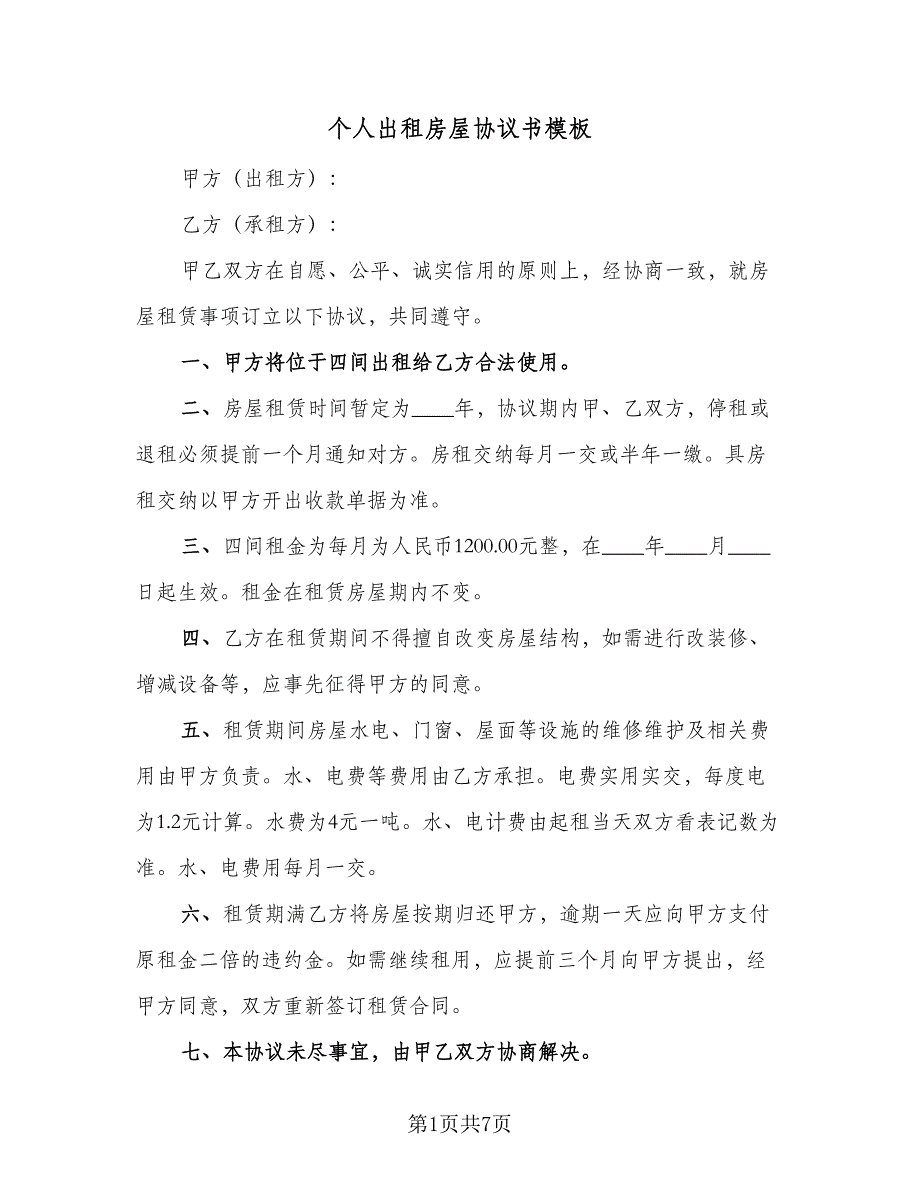 个人出租房屋协议书模板
甲方（出租方）：
乙方（承租方）：
甲乙双方在自愿、公平、诚实信用的原则上，经协商一致，就房
屋租赁事项订立以下协议，共同遵守。
一、甲方将位于四间出租给乙方合法使用。
二、房屋租赁时间暂定为____年，协议期内甲、乙双方，停租或
退租必须提前一个月通知对方。房租交纳每月一交或半年一缴。具房
租交纳以甲方开出收款单据为准。
三、四间租金为每月为人民币1200.00元整，在____年____月____
日起生效。租金在租赁房屋期内不变。
四、乙方在租赁期间不得擅自改变房屋结构，如需进行改装修、
增减设备等，应事先征得甲方的同意。
五、租赁期间房屋水电、门窗、屋面等设施的维修维护及相关费
用由甲方负责。水、电费等费用由乙方承担。电费实用实交，每度电
为1.2元计算。水费为4元一吨。水、电计费由起租当天双方看表记数为
准。水、电费用每月一交。
六、租赁期满乙方将房屋按期归还甲方，逾期一天应向甲方支付
原租金二倍的违约金。如需继续租用，应提前三个月向甲方提出，经
甲方同意，双方重新签订租赁合同。
七、本协议未尽事宜，由甲乙双方协商解决。
第1页共7页